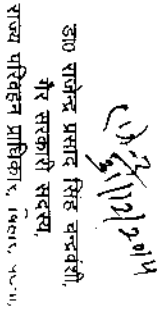 01/12/2014
डा० राजेन्द्र प्रसाद सिंह चन्द्रवंशी,
गैर सरकारी सदस्य,
राज्य परिवहन प्राधिकार, बिहार, पटना,